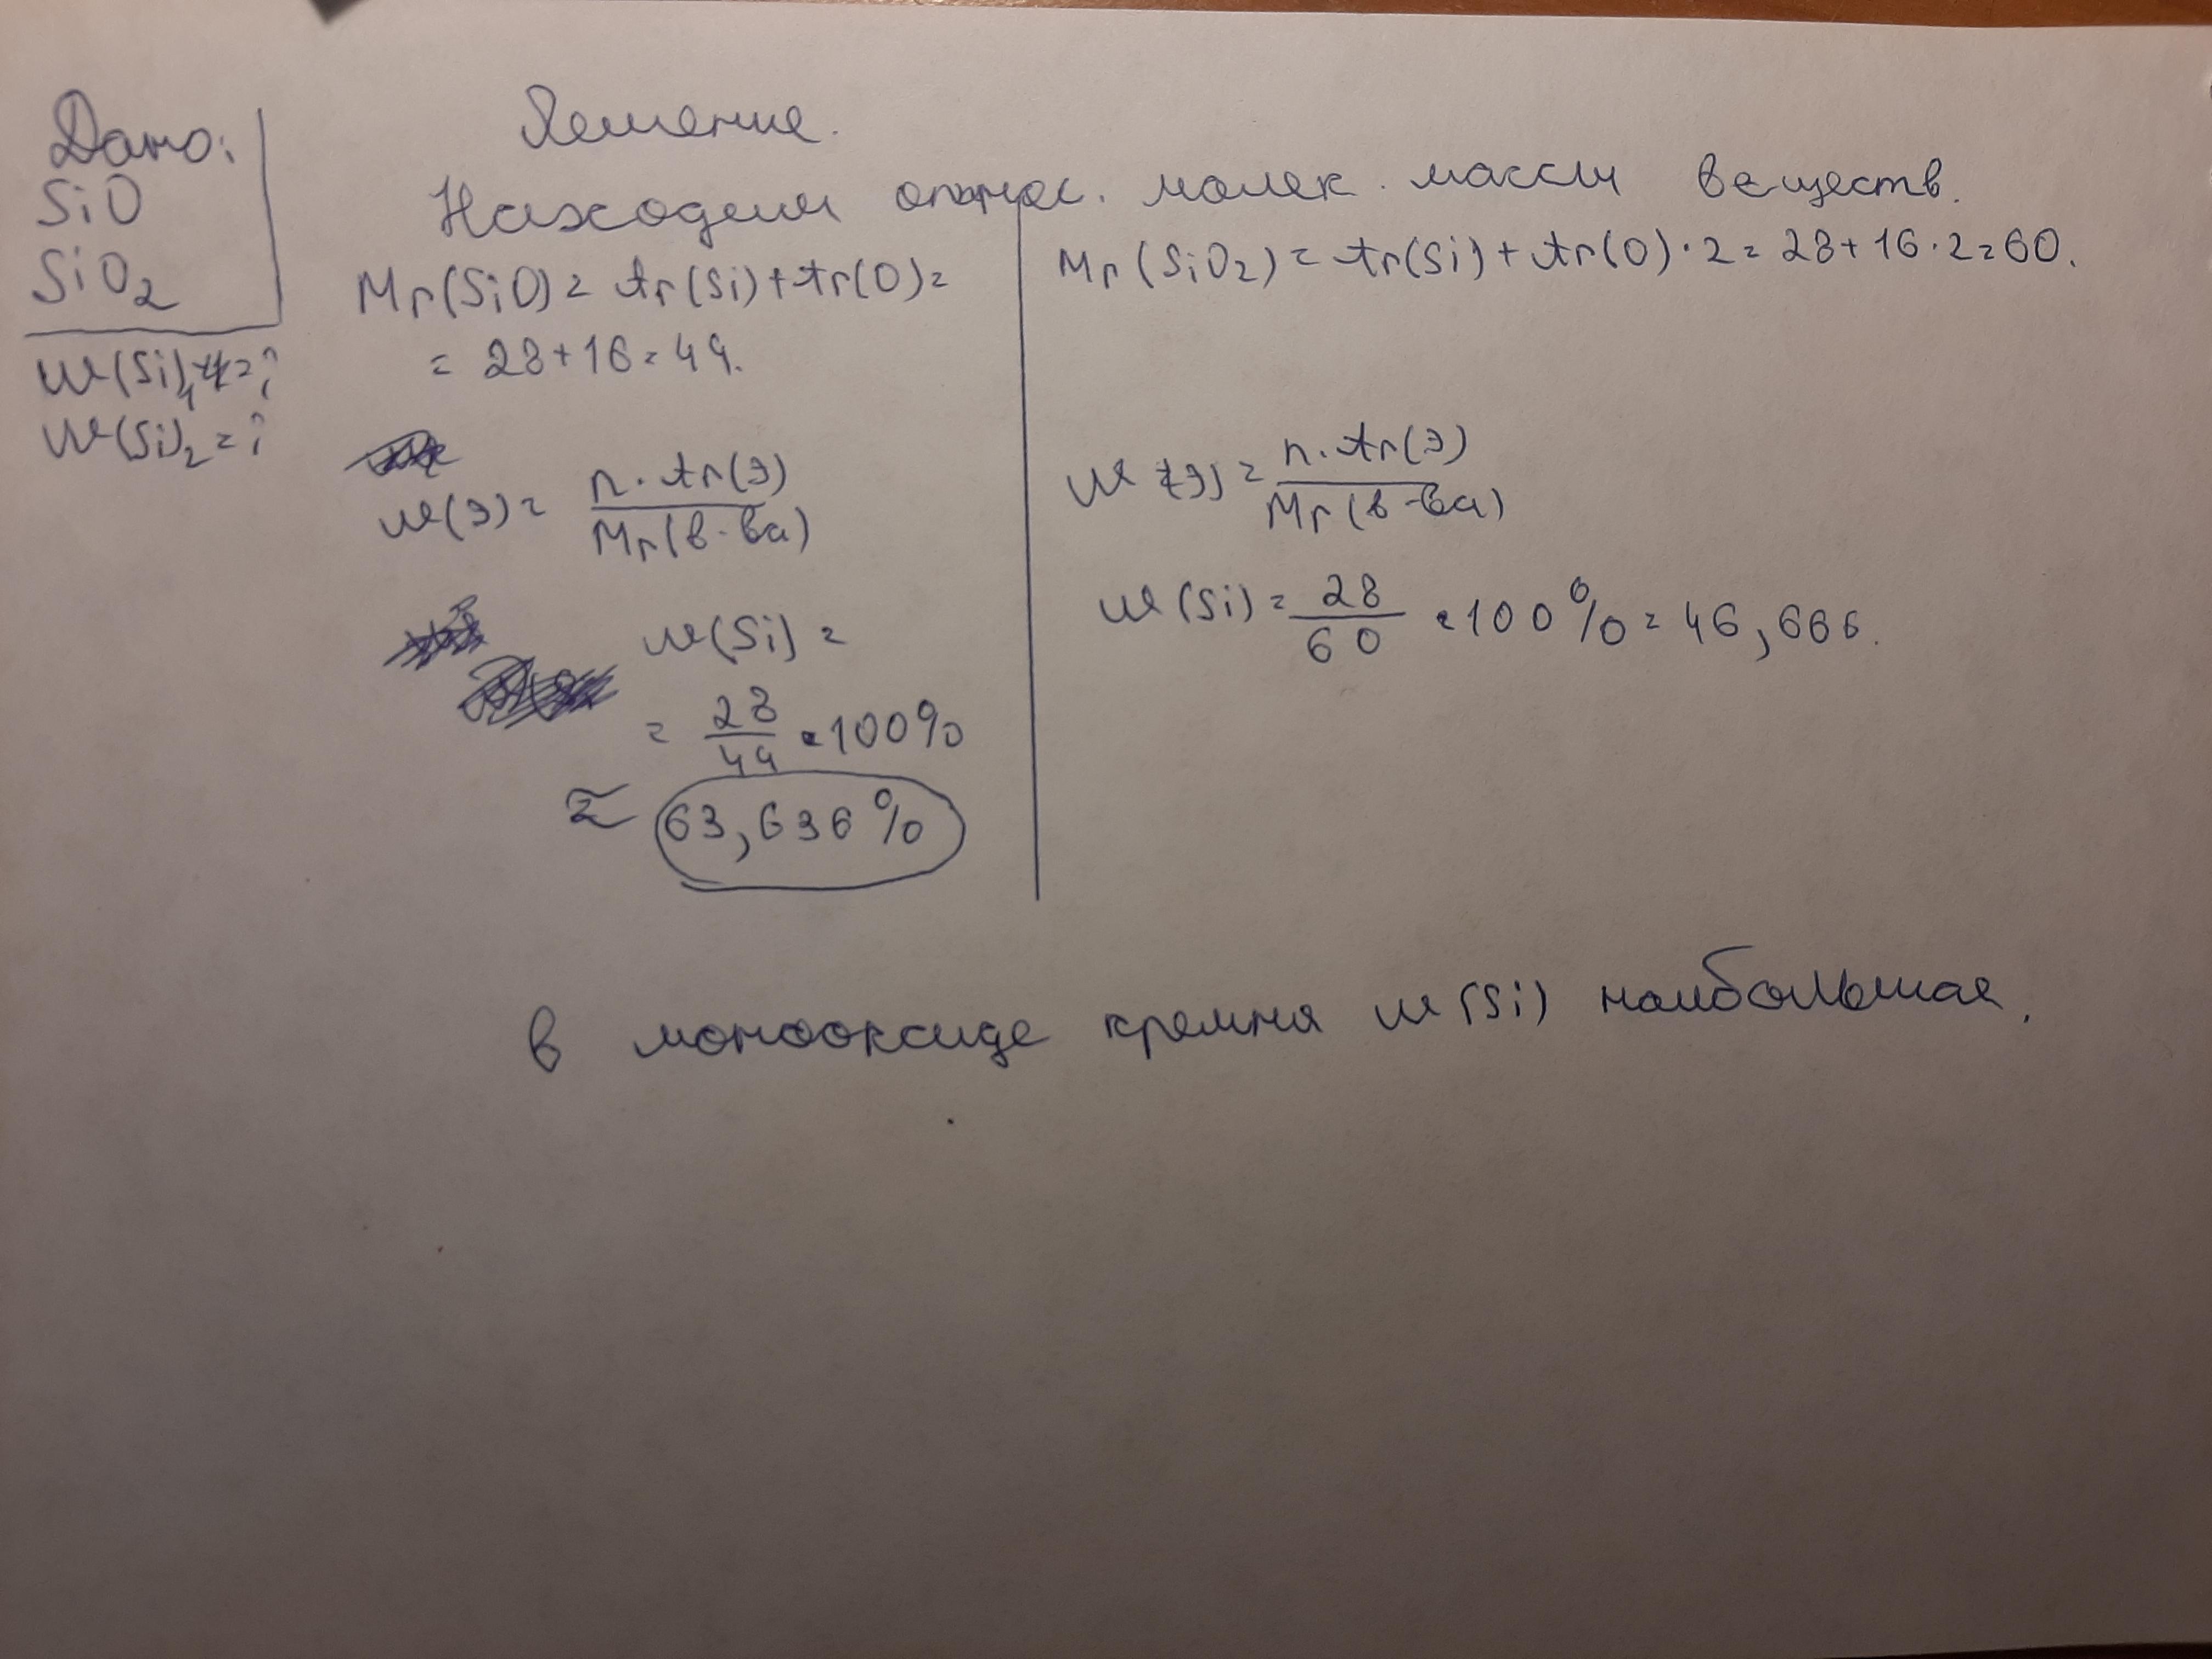 Дано:
SiO
SiO₂
w(Si)₁ = ?
w(Si)₂ = ?
Решение.
Находим относ. молек. массы веществ.
Mr(SiO) = Ar(Si) + Ar(O) =
= 28 + 16 = 44.
w(Э) = n · Ar(Э) / Mr(в-ва)
w(Si) =
= 28/44 · 100%
≈ 63,636%
Mr(SiO₂) = Ar(Si) + Ar(O) · 2 = 28 + 16 · 2 = 60.
w(Э) = n · Ar(Э) / Mr(в-ва)
w(Si) = 28/60 · 100% = 46,666.
в монооксиде кремня w(Si) наибольшая.